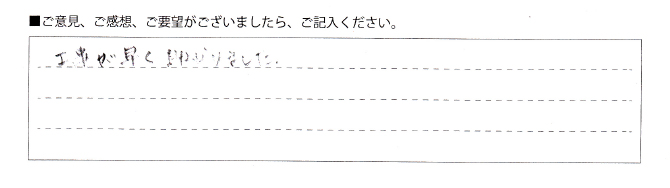 ■ご意見、ご感想、ご要望がございましたら、ご記入ください。
工事が早く助かりました。